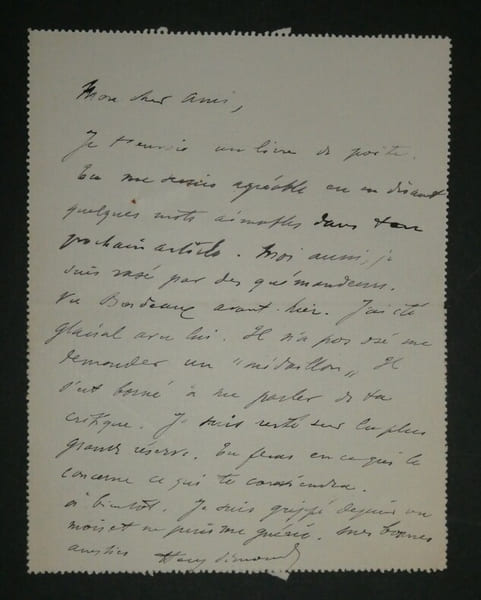 Mon cher Ami,
Je t'envoie un livre de poète.
Tu me serais agréable en en disant
quelques mots aimables dans ton
prochain article. Moi aussi, je
suis rasé par des quémandeurs.
Vu Bordeaux avant-hier. J'ai été
glacial avec lui. Il n'a pas osé me
demander un "médaillon". Il
s'est borné à me parler de ta
critique. Je suis resté sur la plus
grande réserve. Tu feras en ce qui le
concerne ce qui te conviendra.
à bientôt. Je suis grippé depuis un
mois et ne puis me guérir. mes bonnes
amitiés